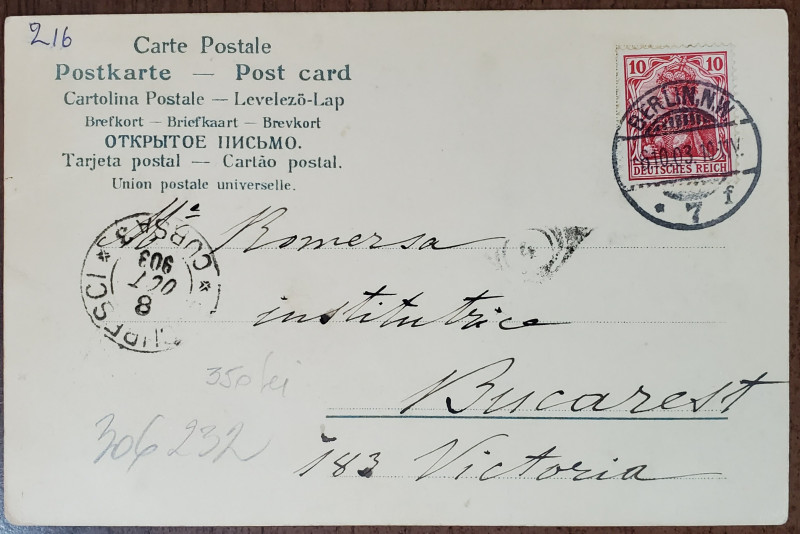 216
Carte Postale
Postkarte — Post card
Cartolina Postale — Levelező-Lap
Brefkort — Briefkaart — Brevkort
ОТКРЫТОЕ ПИСЬМО.
Tarjeta postal — Cartão postal.
Union postale universelle.
10 10
DEUTSCHES REICH
BERLIN, N.W.
10.03.
* 7 f
CURSA 3
8
OCT
903
Mlle Romersa
institutrice
Bucarest
183 Victoria
350 lei
306 232